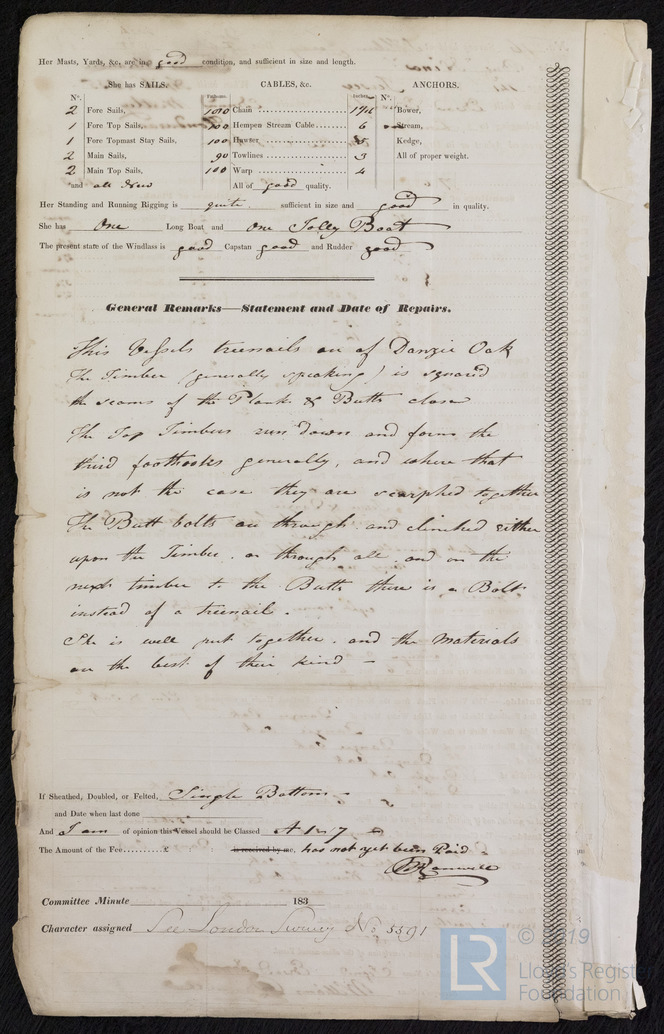 Her Masts, Yards, &c. are in good condition, and sufficient in size and length.
She has SAILS. CABLES, &c. ANCHORS.
No. Fathoms. Inches. No.
2 Fore Sails, Chain Bower,
1 Fore Top Sails, 100 Hempen Stream Cable 6 Stream,
1 Fore Topmast Stay Sails, 100 Hawser Kedge,
2 Main Sails, 90 Towlines 3 All of proper weight.
2 Main Top Sails, 100 Warp 4
and all New All of good quality.
Her Standing and Running Rigging is quite sufficient in size and good in quality.
She has One Long Boat and one Jolly Boat
The present state of the Windlass is good Capstan good and Rudder good
General Remarks—Statement and Date of Repairs.
This Vessels treenails are of Danzic Oak
The Timber (generally speaking) is squared
the seams of the Plank & Butts close
The Top Timbers run down and form the
third foothooks generally, and where that
is not the case they are scarphed together
The Butt bolts are through and clinched either
upon the Timber. or through all and on the
next timber to the Butts there is a Bolt
instead of a treenail.
She is well put together. and the materials
are the best of their kind —
If Sheathed, Doubled, or Felted, Single Bottom —
and Date when last done
And I am of opinion this Vessel should be Classed A 1
The Amount of the Fee £ : : is received by me, has not yet been Paid
Committee Minute 183
Character assigned See London Survey No 5591
© 2019
LR
Lloyd's Register
Foundation